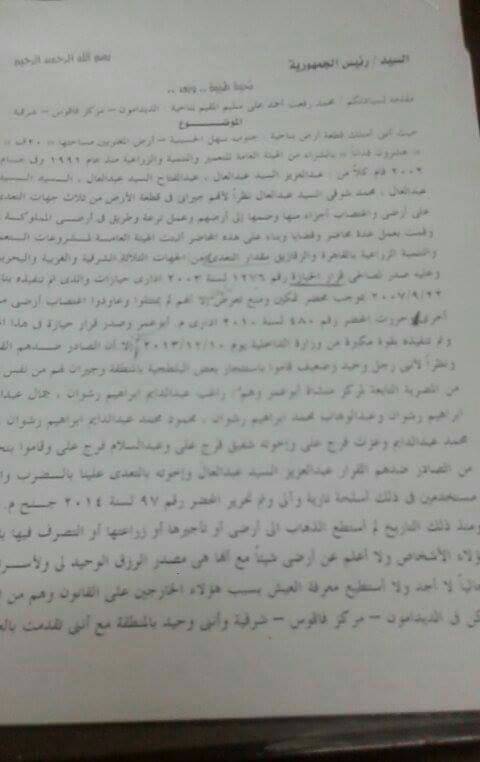 بسم الله الرحمن الرحيم
السيد / رئيس الجمهورية
تحية طيبة .. وبعد ،،
مقدمه لسيادتكم / محمد رفعت أحمد على سليم المقيم بناحية : الديدامون – مركز فاقوس – شرقية
الموضوع
حيث أنى أمتلك قطعة أرض بناحية : جنوب سهل الحسينية – أرض المغتربين مساحتها " ٢٠ف "
" عشرون فداناً " بالشراء من الهيئة العامة للتعمير والتنمية والزراعية منذ عام ١٩٩١ وفى عام
٢٠٠٢ قام كلاً من : عبدالعزيز السيد عبدالعال ، عبدالفتاح السيد عبدالعال ، السيد السيد
عبدالعال ، محمد شوقى السيد عبدالعال نظراً لأنهم جيرانى فى قطعة الأرض من ثلاث جهات التعدى
على أرضى واغتصاب أجزاء منها وضمها إلى أرضهم وعمل ترعة وطريق فى أرضى المملوكة
وقمت بعمل عدة محاضر وقضايا وبناء على هذه المحاضر أثبتت الهيئة العامة لمشروعات التعم
والتنمية الزراعية بالقاهرة والزقازيق مقدار التعدى من الجهات الثلاثة الشرقية والغربية والبحرية
وعليه صدر لصالحى قرار الحيازة رقم ١٢٧٦ لسنة ٢٠٠٣ ادارى حيازات والذى تم تنفيذه بتا
٢٠٠٧/٩/٢٢ بموجب محضر تمكين ومنع تعرض إلا أنهم لم يمتثلوا وعاودوا اغتصاب أرضى م
أخرى حررت المحضر رقم ٤٨٠ لسنة ٢٠١٠ ادارى م. أبوعمر وصدر قرار حيازة فى هذا ا
وتم تنفيذه بقوة مكبرة من وزارة الداخلية يوم ٢٠١٣/١٢/١٠ إلا أن الصادر ضدهم الق
ونظراً لأنى رجل وحيد وضعيف قاموا باستئجار بعض البلطجية بالمنطقة وجيران لهم من نفس
من المصرية التابعة لمركز منشأة أبوعمر وهم : راغب عبدالدايم ابراهيم رشوان ، جمال عبدا
ابراهيم رشوان وعبدالوهاب محمد ابراهيم رشوان ، محمود محمد عبدالدايم ابراهيم رشوان
محمد عبدالدايم وعزت فرج على وإخوته شفيق فرج على وعبدالسلام فرج على وقاموا بتح
من الصادر ضدهم القرار عبدالعزيز السيد عبدالعال وإخوته بالتعدى علينا بالضرب وا
مستخدمين فى ذلك أسلحة نارية وآلى وتم تحرير المحضر رقم ٩٧ لسنة ٢٠١٤ جنح م.
ومنذ ذلك التاريخ لم أستطع الذهاب الى أرضى أو تأجيرها أو زراعتها أو التصرف فيها ب
ؤلاء الأشخاص ولا أعلم عن أرضى شيئاً مع أنها هى مصدر الرزق الوحيد لى ولأسر
الياً لا أجد ولا أستطيع معرفة العيش بسبب هؤلاء الخارجين على القانون وهم من ا
كن فى الديدامون – مركز فاقوس – شرقية وأننى وحيد بالمنطقة مع أننى تقدمت بالع